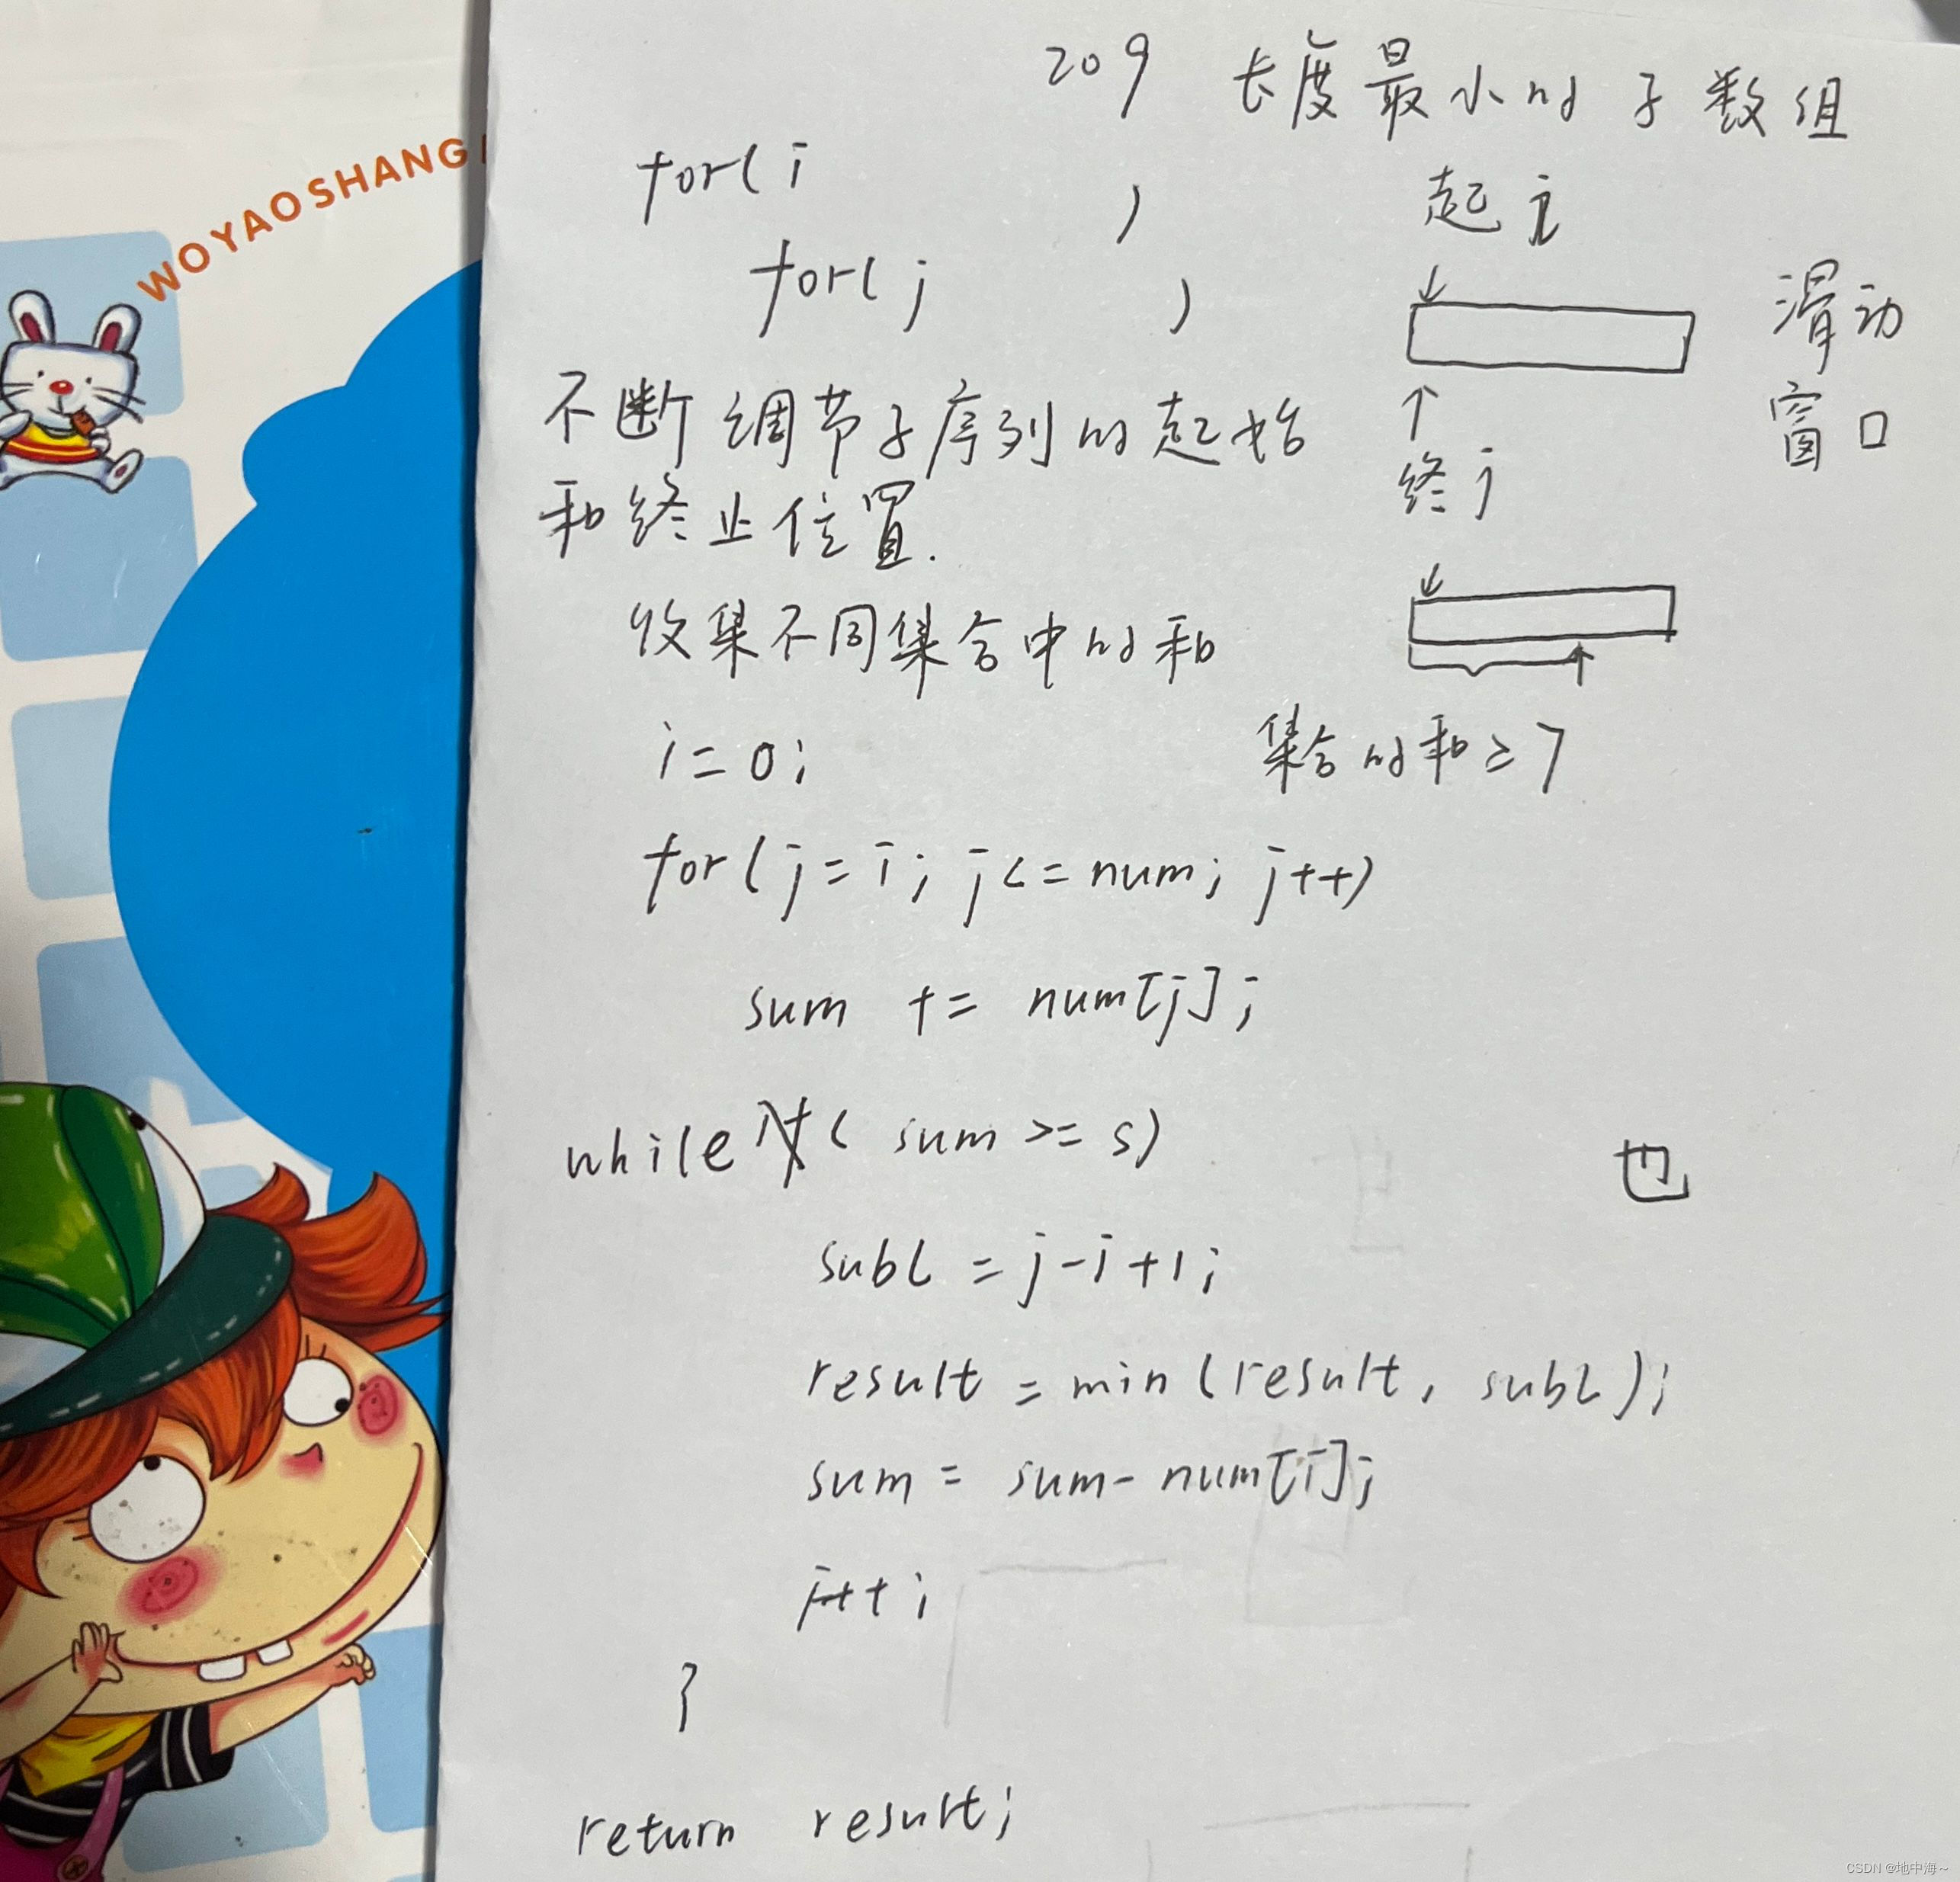 WOYAOSHANG
209 长度最小的子数组
for(i )
for(j )
起 i
滑动
窗口
终 j
不断调节子序列的起始
和终止位置.
收集不同集合中的和
集合的和≥7
i=0;
for(j=i; j<=num; j++)
sum += num[j];
while if( sum >= s)
也
subL = j-i+1;
result = min(result, subL);
sum = sum- num[i];
i++;
}
return result;
CSDN @地中海~